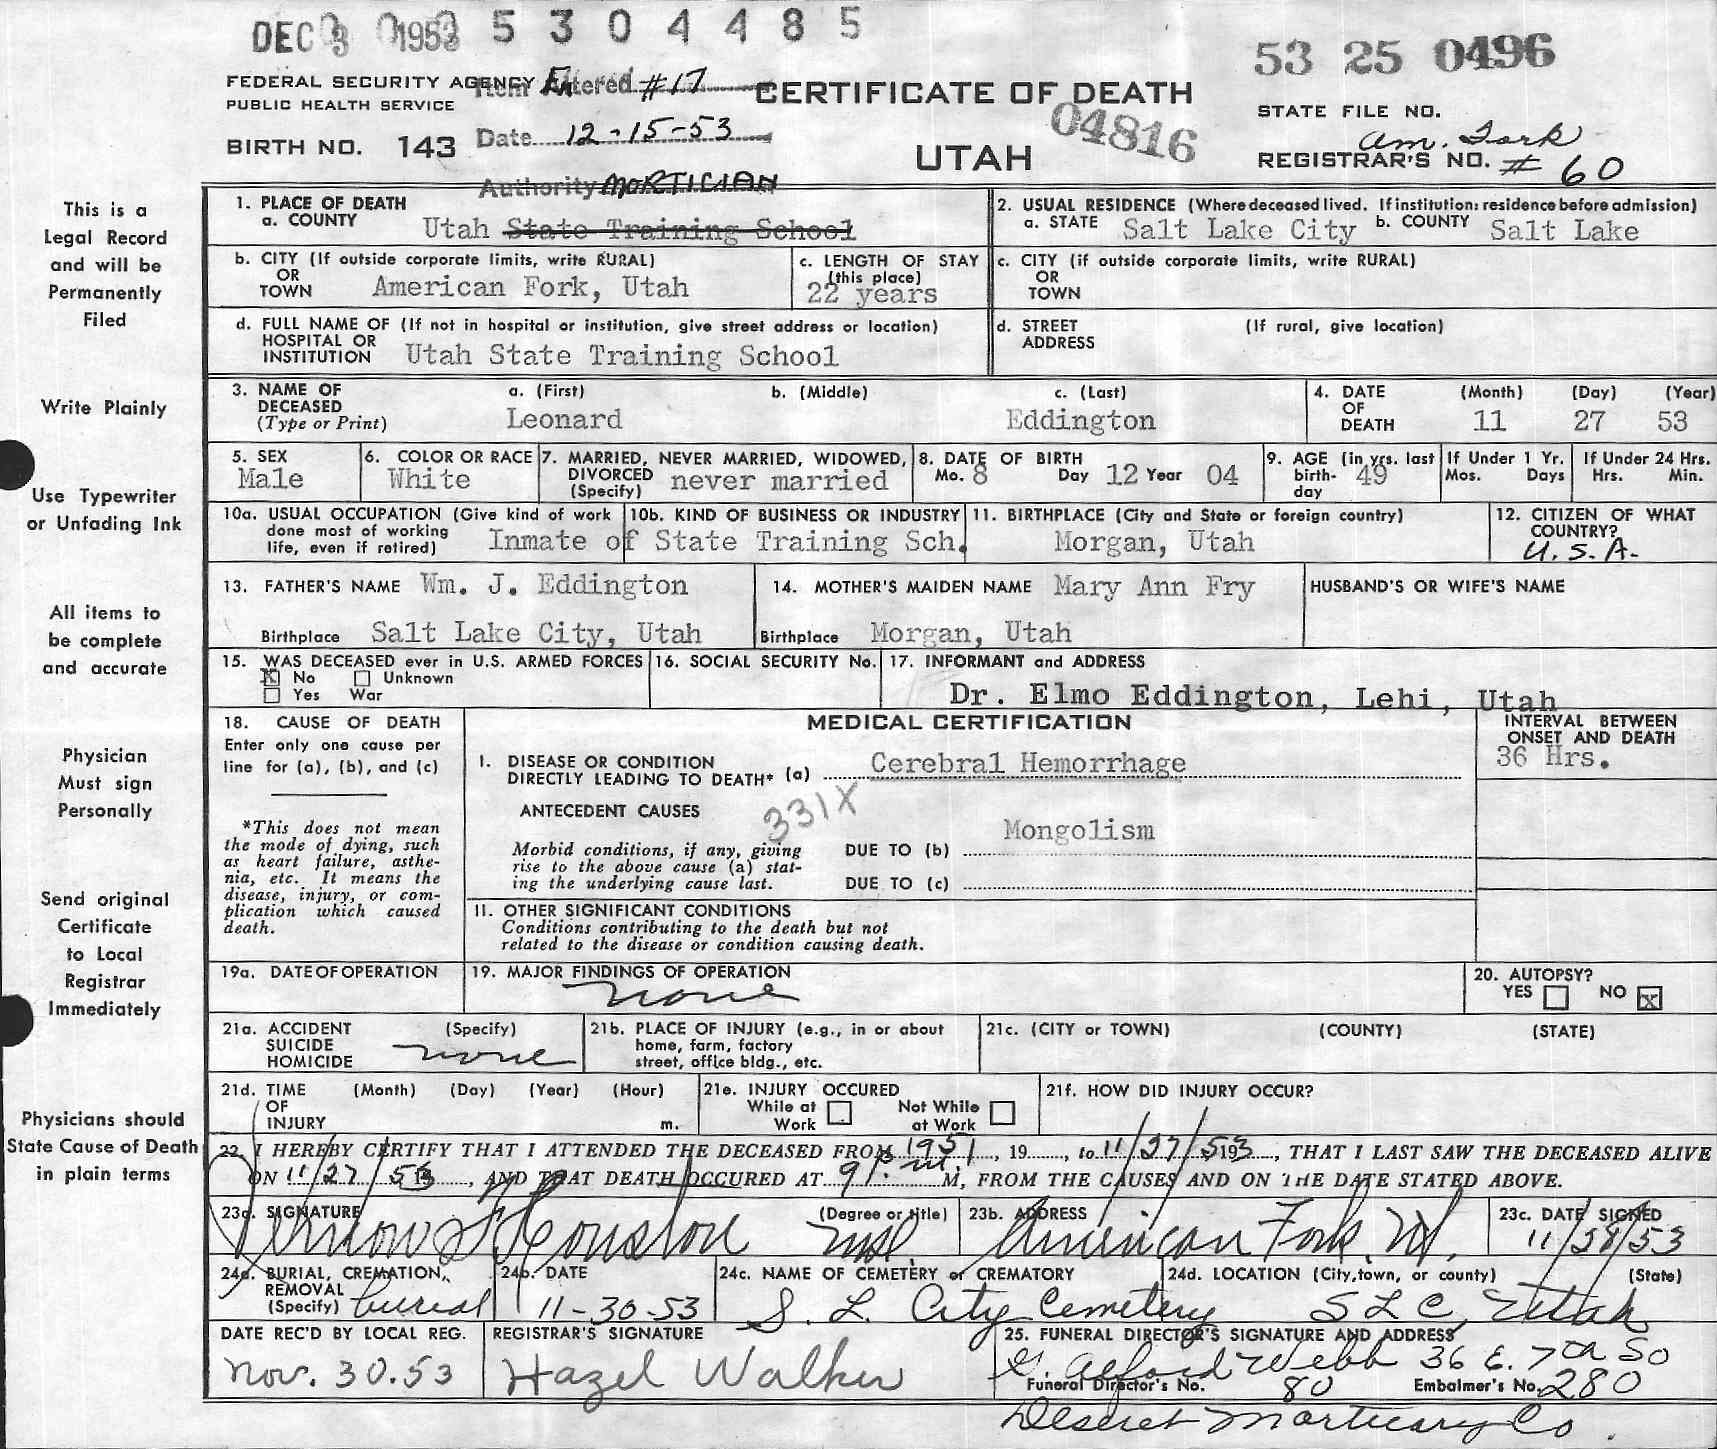 DEC 3 1953 5 3 0 4 4 8 5
53 25 0496
FEDERAL SECURITY AGENCY
PUBLIC HEALTH SERVICE
BIRTH NO. 143
Item Entered #17
Date 12-15-53
Authority MORTICIAN
CERTIFICATE OF DEATH
04816
UTAH
STATE FILE NO.
Am. Fork
REGISTRAR'S NO. # 60
This is a
Legal Record
and will be
Permanently
Filed
Write Plainly
Use Typewriter
or Unfading Ink
All items to
be complete
and accurate
Physician
Must sign
Personally
Send original
Certificate
to Local
Registrar
Immediately
Physicians should
State Cause of Death
in plain terms
1. PLACE OF DEATH
a. COUNTY Utah State Training School
2. USUAL RESIDENCE (Where deceased lived. If institution: residence before admission)
a. STATE Salt Lake City b. COUNTY Salt Lake
b. CITY (If outside corporate limits, write RURAL)
OR
TOWN American Fork, Utah
c. LENGTH OF STAY
(this place)
22 years
c. CITY (if outside corporate limits, write RURAL)
OR
TOWN
d. FULL NAME OF (If not in hospital or institution, give street address or location)
HOSPITAL OR
INSTITUTION Utah State Training School
d. STREET (If rural, give location)
ADDRESS
3. NAME OF DECEASED (Type or Print)
a. (First) b. (Middle) c. (Last)
Leonard Eddington
4. DATE OF DEATH
(Month) (Day) (Year)
11 27 53
5. SEX
Male
6. COLOR OR RACE
White
7. MARRIED, NEVER MARRIED, WIDOWED,
DIVORCED
(Specify) never married
8. DATE OF BIRTH
Mo. 8 Day 12 Year 04
9. AGE (in yrs. last
birth- 49
day
If Under 1 Yr.
Mos. Days
If Under 24 Hrs.
Hrs. Min.
10a. USUAL OCCUPATION (Give kind of work
done most of working
life, even if retired)
10b. KIND OF BUSINESS OR INDUSTRY
Inmate of State Training Sch.
11. BIRTHPLACE (City and State or foreign country)
Morgan, Utah
12. CITIZEN OF WHAT
COUNTRY?
U. S. A.
13. FATHER'S NAME Wm. J. Eddington
Birthplace Salt Lake City, Utah
14. MOTHER'S MAIDEN NAME Mary Ann Fry
Birthplace Morgan, Utah
HUSBAND'S OR WIFE'S NAME
15. WAS DECEASED ever in U.S. ARMED FORCES
X No Unknown
Yes War
16. SOCIAL SECURITY No.
17. INFORMANT and ADDRESS
Dr. Elmo Eddington, Lehi, Utah
18. CAUSE OF DEATH
Enter only one cause per
line for (a), (b), and (c)
*This does not mean
the mode of dying, such
as heart failure, asthe-
nia, etc. It means the
disease, injury, or com-
plication which caused
death.
MEDICAL CERTIFICATION
INTERVAL BETWEEN
ONSET AND DEATH
36 Hrs.
I. DISEASE OR CONDITION
DIRECTLY LEADING TO DEATH* (a) Cerebral Hemorrhage
ANTECEDENT CAUSES
331X
Morbid conditions, if any, giving
rise to the above cause (a) stat-
ing the underlying cause last.
DUE TO (b) Mongolism
DUE TO (c)
11. OTHER SIGNIFICANT CONDITIONS
Conditions contributing to the death but not
related to the disease or condition causing death.
19a. DATE OF OPERATION
19. MAJOR FINDINGS OF OPERATION
none
20. AUTOPSY?
YES NO X
21a. ACCIDENT (Specify)
SUICIDE
HOMICIDE none
21b. PLACE OF INJURY (e.g., in or about
home, farm, factory
street, office bldg., etc.
21c. (CITY or TOWN) (COUNTY) (STATE)
21d. TIME (Month) (Day) (Year) (Hour)
OF
INJURY m.
21e. INJURY OCCURED
While at Work Not While at Work
21f. HOW DID INJURY OCCUR?
22. I HEREBY CERTIFY THAT I ATTENDED THE DECEASED FROM 1951, 19, to 11/27/53 19, THAT I LAST SAW THE DECEASED ALIVE
ON 11/27/53, AND THAT DEATH OCCURED AT 9 P. m. M, FROM THE CAUSES AND ON THE DATE STATED ABOVE.
23a. SIGNATURE (Degree or title)
Vernon F Houston M.D.
23b. ADDRESS
American Fork, Ut.
23c. DATE SIGNED
11/28/53
24a. BURIAL, CREMATION,
REMOVAL
(Specify) burial
24b. DATE
11-30-53
24c. NAME OF CEMETERY or CREMATORY
S. L. City Cemetery
24d. LOCATION (City, town, or county) (State)
S L C, Utah
DATE REC'D BY LOCAL REG.
Nov. 30.53
REGISTRAR'S SIGNATURE
Hazel Walker
25. FUNERAL DIRECTOR'S SIGNATURE AND ADDRESS
G. Alford Webb 36 E. 7th So
Funeral Director's No. 80 Embalmer's No. 280
Deseret Mortuary Co.